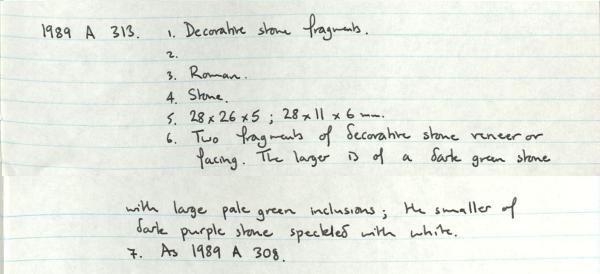 1989 A 313. 1. Decorative stone fragments.
2.
3. Roman.
4. Stone.
5. 28 x 26 x 5 ; 28 x 11 x 6 mm.
6. Two fragments of decorative stone veneer or
facing. The larger is of a dark green stone
with large pale green inclusions; the smaller of
dark purple stone speckled with white.
7. As 1989 A 308.